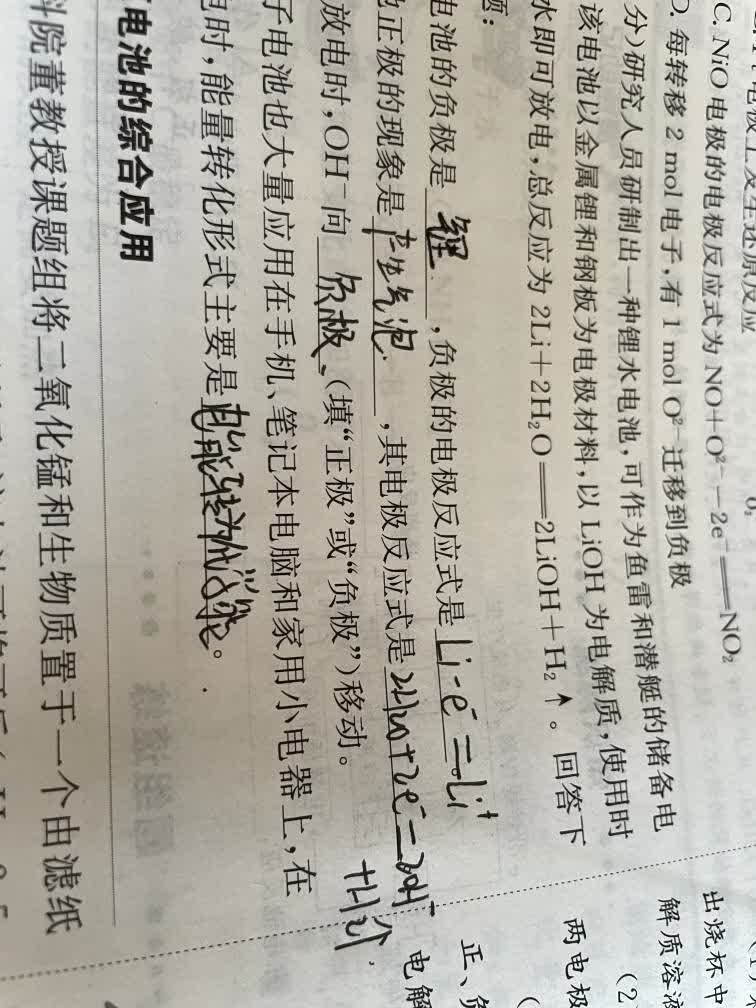 上发生还原反应
C. NiO 电极的电极反应式为 NO+O²⁻-2e⁻══NO₂
D. 每转移 2 mol 电子,有 1 mol O²⁻ 迁移到负极
分)研究人员研制出一种锂水电池,可作为鱼雷和潜艇的储备电
该电池以金属锂和钢板为电极材料,以 LiOH 为电解质,使用时
水即可放电,总反应为 2Li+2H₂O══2LiOH+H₂↑。回答下
题:
电池的负极是 锂 ,负极的电极反应式是 Li-e⁻=Li⁺
正极的现象是 产生气泡 ,其电极反应式是 2H₂O+2e⁻=2OH⁻+H₂↑
放电时,OH⁻向 负极 (填“正极”或“负极”)移动。
子电池也大量应用在手机、笔记本电脑和家用小电器上,在
时,能量转化形式主要是 电能转为化学能 。
电池的综合应用
科院董教授课题组将二氧化锰和生物质置于一个由滤纸
出烧杯中
解质溶液
(2
两电极
正、负
电解